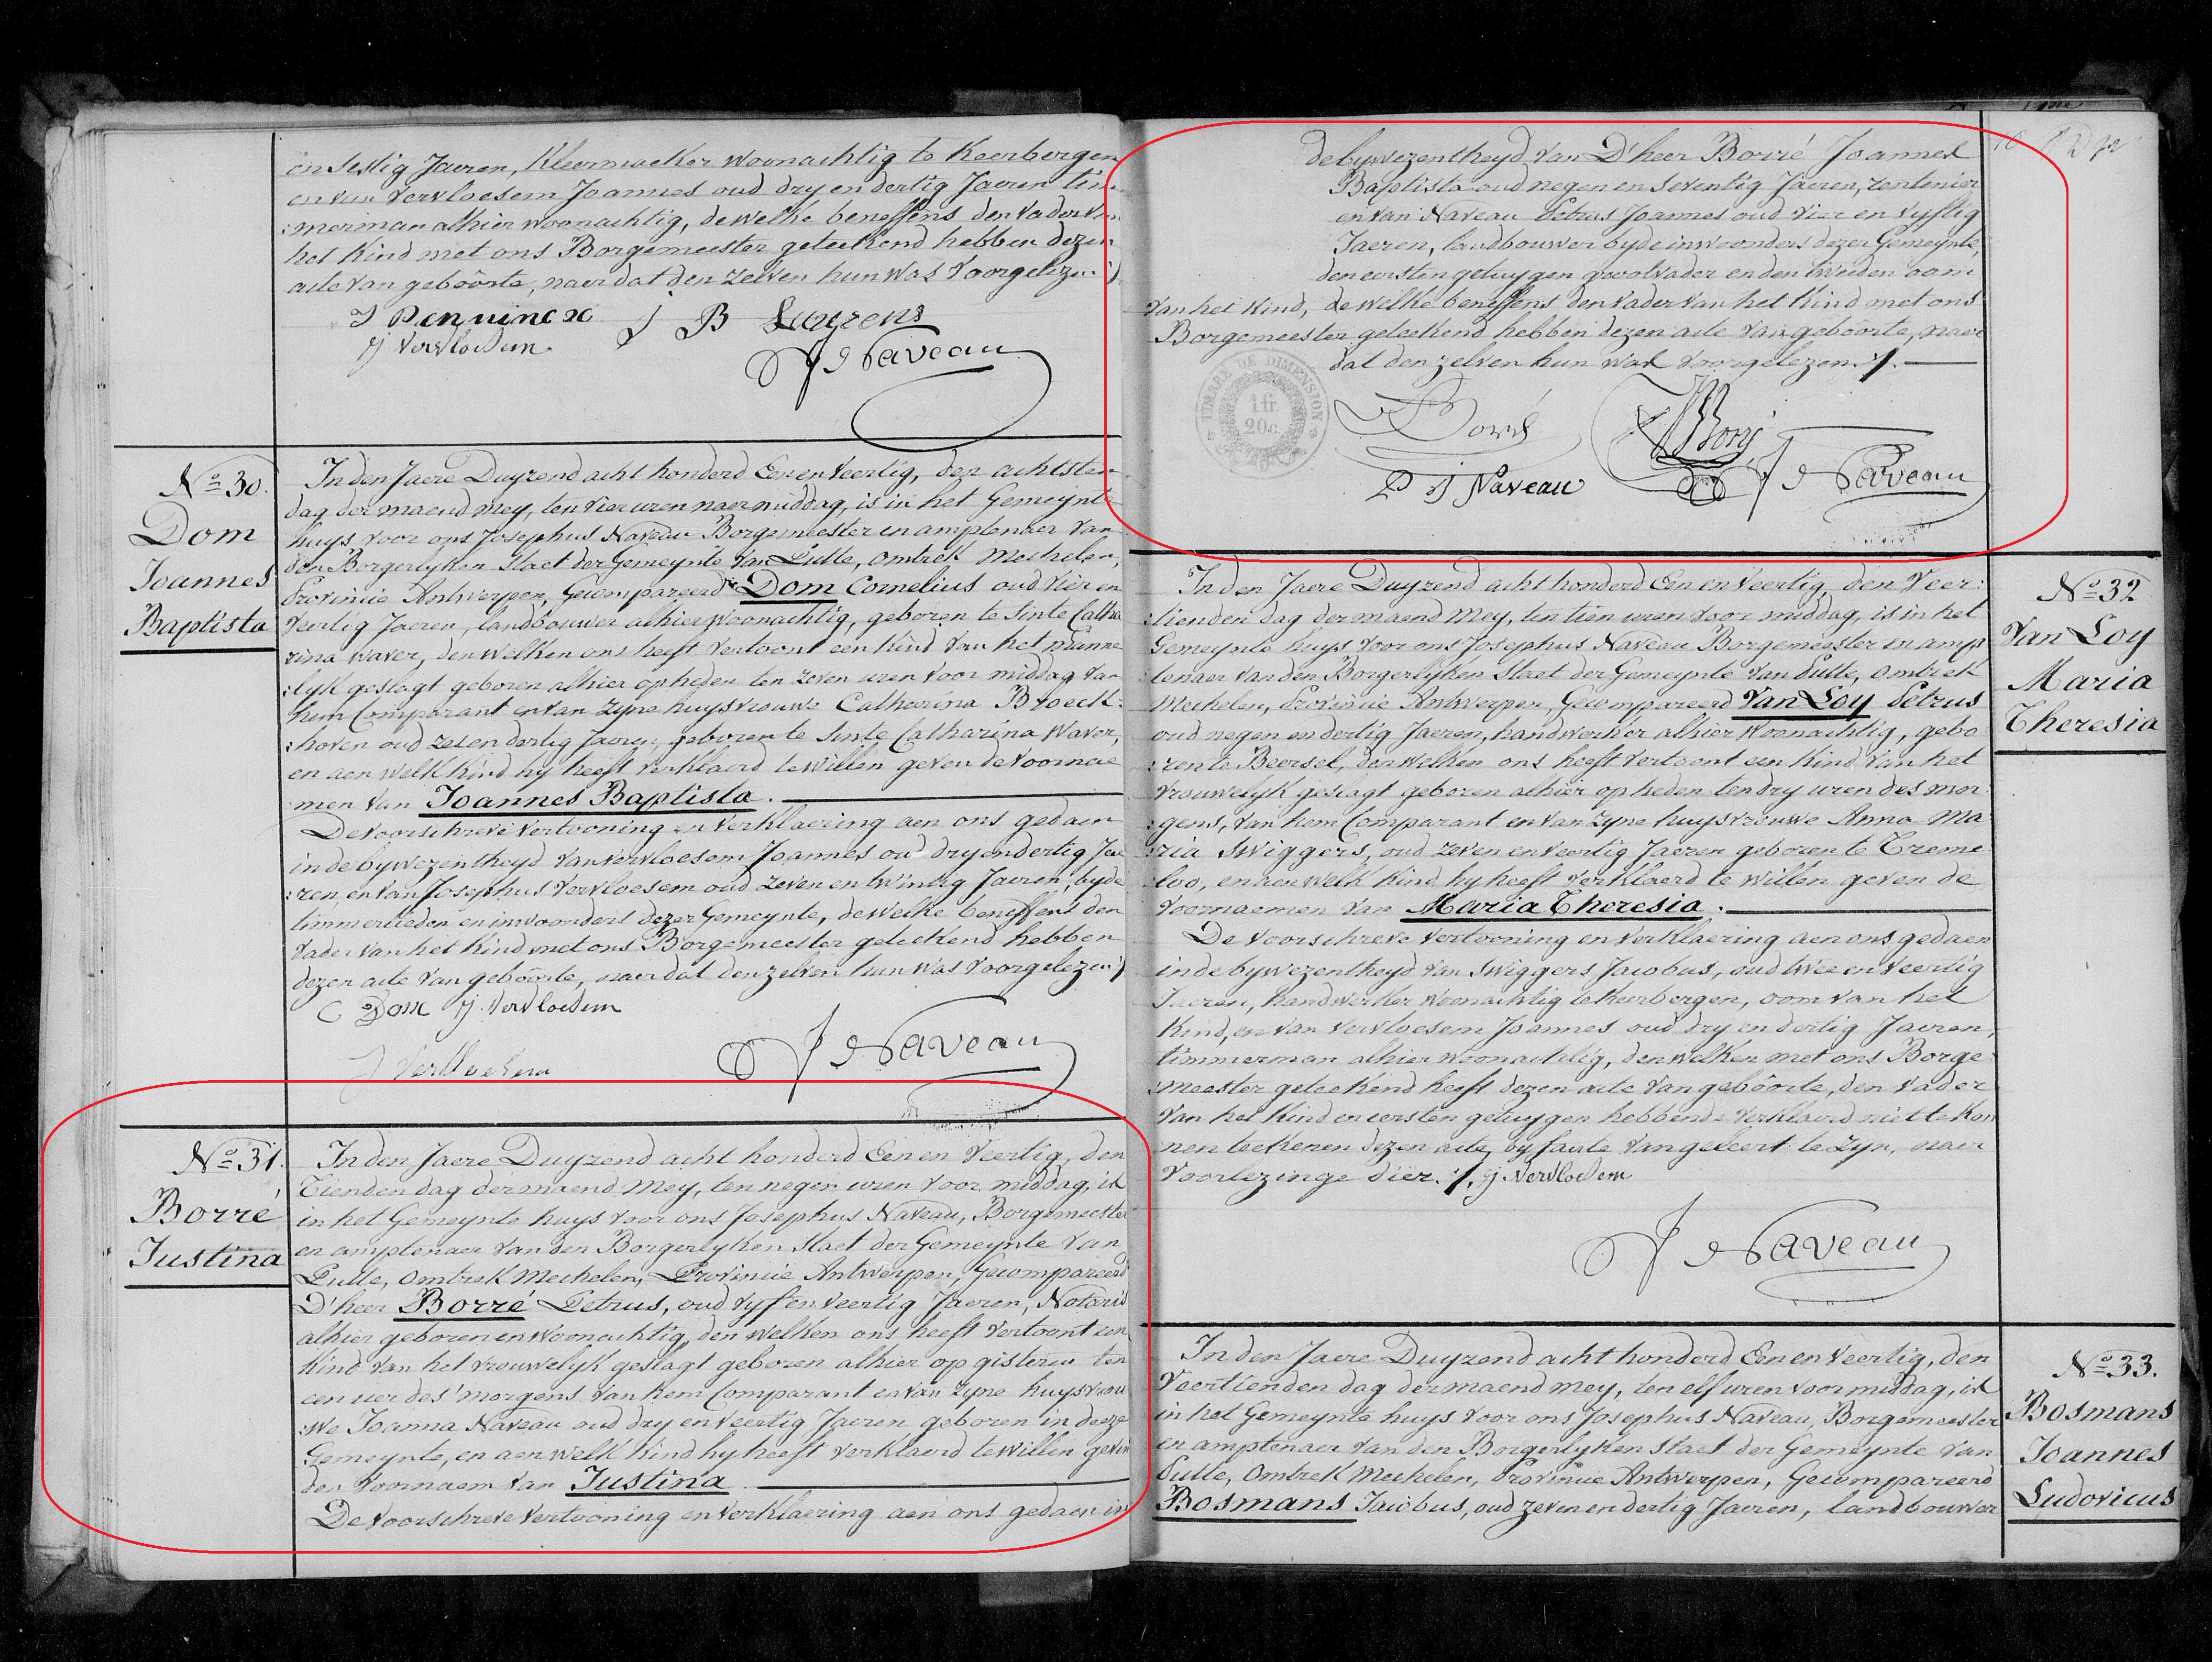 en sestig Jaeren, Kleermaeker woonachtig te Keerbergen
en van Vervloesem Joannes oud dry en dertig Jaeren tim
:merman alhier woonachtig, dewelke beneffens den vader van
het Kind met ons Borgemeester geteekend hebben dezen
acte van geboôrte, naer dat den zelven hun was voorgelezen ./.
J Pennincx J B Luyzens
J Vervloesem
J Naveau
No 30.
Dom
Joannes
Baptista
In den Jaere Duyzend acht honderd Een en Veertig, den achtsten
dag der maend mey, ten vier uren naermiddag, is in het Gemeynte
huys voor ons Josephus Naveau Borgemeester en amptenaer van
den Borgerlyken Staet der Gemeynte van Putte, omtrek Mechelen,
Provincie Antwerpen, Gecompareerd Dom Cornelius oud vier en
veertig Jaeren, landbouwer alhier woonachtig, geboren te Sinte Catha
rina Waver, den welken ons heeft vertoont een Kind van het manne
:lyk geslagt geboren alhier op heden ten zeven uren voor middag van
hem Comparant en van zyne huysvrouwe Catharina Broeck:
:hoven oud zes en dertig Jaeren, geboren te Sinte Catharina Waver,
en aen welk kind hy heeft verklaerd te willen geven de voornae
men van Joannes Baptista.
De voorschreve vertooning en verklaering aen ons gedaen
in de bywezentheyd van Vervloesem Joannes oud dry en dertig Jae
:ren, en van Josephus Vervloesem oud zeven en twintig Jaeren, byde
timmerlieden en inwoonders dezer Gemeynte, dewelke beneffens den
vader van het Kind met ons Borgemeester geteekend hebben
dezen acte van geboôrte, naer dat den zelven hun was voorgelezen ./.
C Dom J. Vervloesem
J Vervloesem
J Naveau
No 31.
Borré
Justina
In den Jaere Duyzend acht honderd Een en Veertig, den
Tienden dag der maend Mey, ten negen uren voor middag, is
in het Gemeynte huys voor ons Josephus Naveau, Borgemeester
en amptenaer van den Borgerlyken Staet der Gemeynte van
Putte, omtrek Mechelen, Provincie Antwerpen, Gecompareerd
D'heer Borré Petrus, oud vyf en veertig Jaeren, Notaris
alhier geboren en woonachtig, den welken ons heeft vertoont een
Kind van het vrouwelyk geslagt geboren alhier op gisteren ten
een uer des' morgens van hem Comparant en van zyne huysvrou
:we Joanna Naveau oud dry en veertig Jaeren geboren in deeze
Gemeynte, en aen welk Kind hy heeft verklaerd te willen geven
den voornaem van Justina.
De voorschreve vertooning en verklaering aen ons gedaen in
de bywezentheyd van D'heer Borré Joannes
Baptista oud negen en seventig Jaeren, rentenier
en van Naveau Petrus Joannes oud vier en vyftig
Jaeren, landbouwer byde inwoonders dezer Gemeynte,
den eersten getuygen grootvader en den tweeden oom
van het Kind, dewelke beneffens den vader van het Kind met ons
Borgemeester geteekend hebben dezen acte van geboôrte, naer
dat den zelven hun was voorgelezen ./.
TIMBRE DE DIMENSION
1 fr.
20 c.
Borré
P J Naveau
J Naveau
No 32
Van Loy
Maria
Theresia
In den Jaere Duyzend acht honderd Een en Veertig, den Veer:
:tienden dag der maend Mey, ten tien uren voor middag, is in het
Gemeynte huys voor ons Josephus Naveau Borgemeester en amp
tenaer van den Borgerlyken Staet der Gemeynte van Putte, omtrek
Mechelen, Provincie Antwerpen, Gecompareerd Van Loy Petrus
oud negen en dertig Jaeren, handwerker alhier woonachtig, gebo
:ren te Beersel, den welken ons heeft vertoont een Kind van het
vrouwelyk geslagt geboren alhier op heden ten dry uren des mor
:gens, van hem Comparant en van zyne huysvrouwe Anna Ma
:ria Swiggers, oud zeven en veertig Jaeren geboren te Treme
:loo, en aen welk Kind hy heeft verklaerd te willen geven de
voornaemen van Maria Theresia.
De voorschreve vertooning en verklaering aen ons gedaen
in de bywezentheyd van Swiggers Jacobus, oud twee en veertig
Jaeren, handwerker woonachtig te Keerbergen, oom van het
Kind, en van Vervloesem Joannes oud dry en dertig Jaeren,
timmerman alhier woonachtig, den welken met ons Borge
meester geteekend heeft dezen acte van geboôrte, den vader
van het Kind en eersten getuygen hebbende verklaerd niet te kon
nen teekenen dezen acte, by faute van geleert te zyn, naer
voorlezinge dier. ./. J. Vervloesem
J Naveau
No 33.
Bosmans
Joannes
Ludovicus
In den Jaere Duyzend acht honderd Een en Veertig, den
Veertienden dag der maend mey, ten elf uren voor middag, is
in het Gemeynte huys voor ons Josephus Naveau, Borgemeester
en amptenaer van den Borgerlyken Staet der Gemeynte van
Putte, omtrek Mechelen, Provincie Antwerpen, Gecompareerd
Bosmans Jacobus, oud zeven en dertig Jaeren, landbouwer